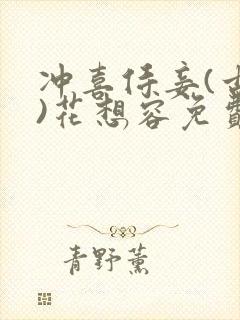 冲喜侍妾(
)花想容免費
青野薰